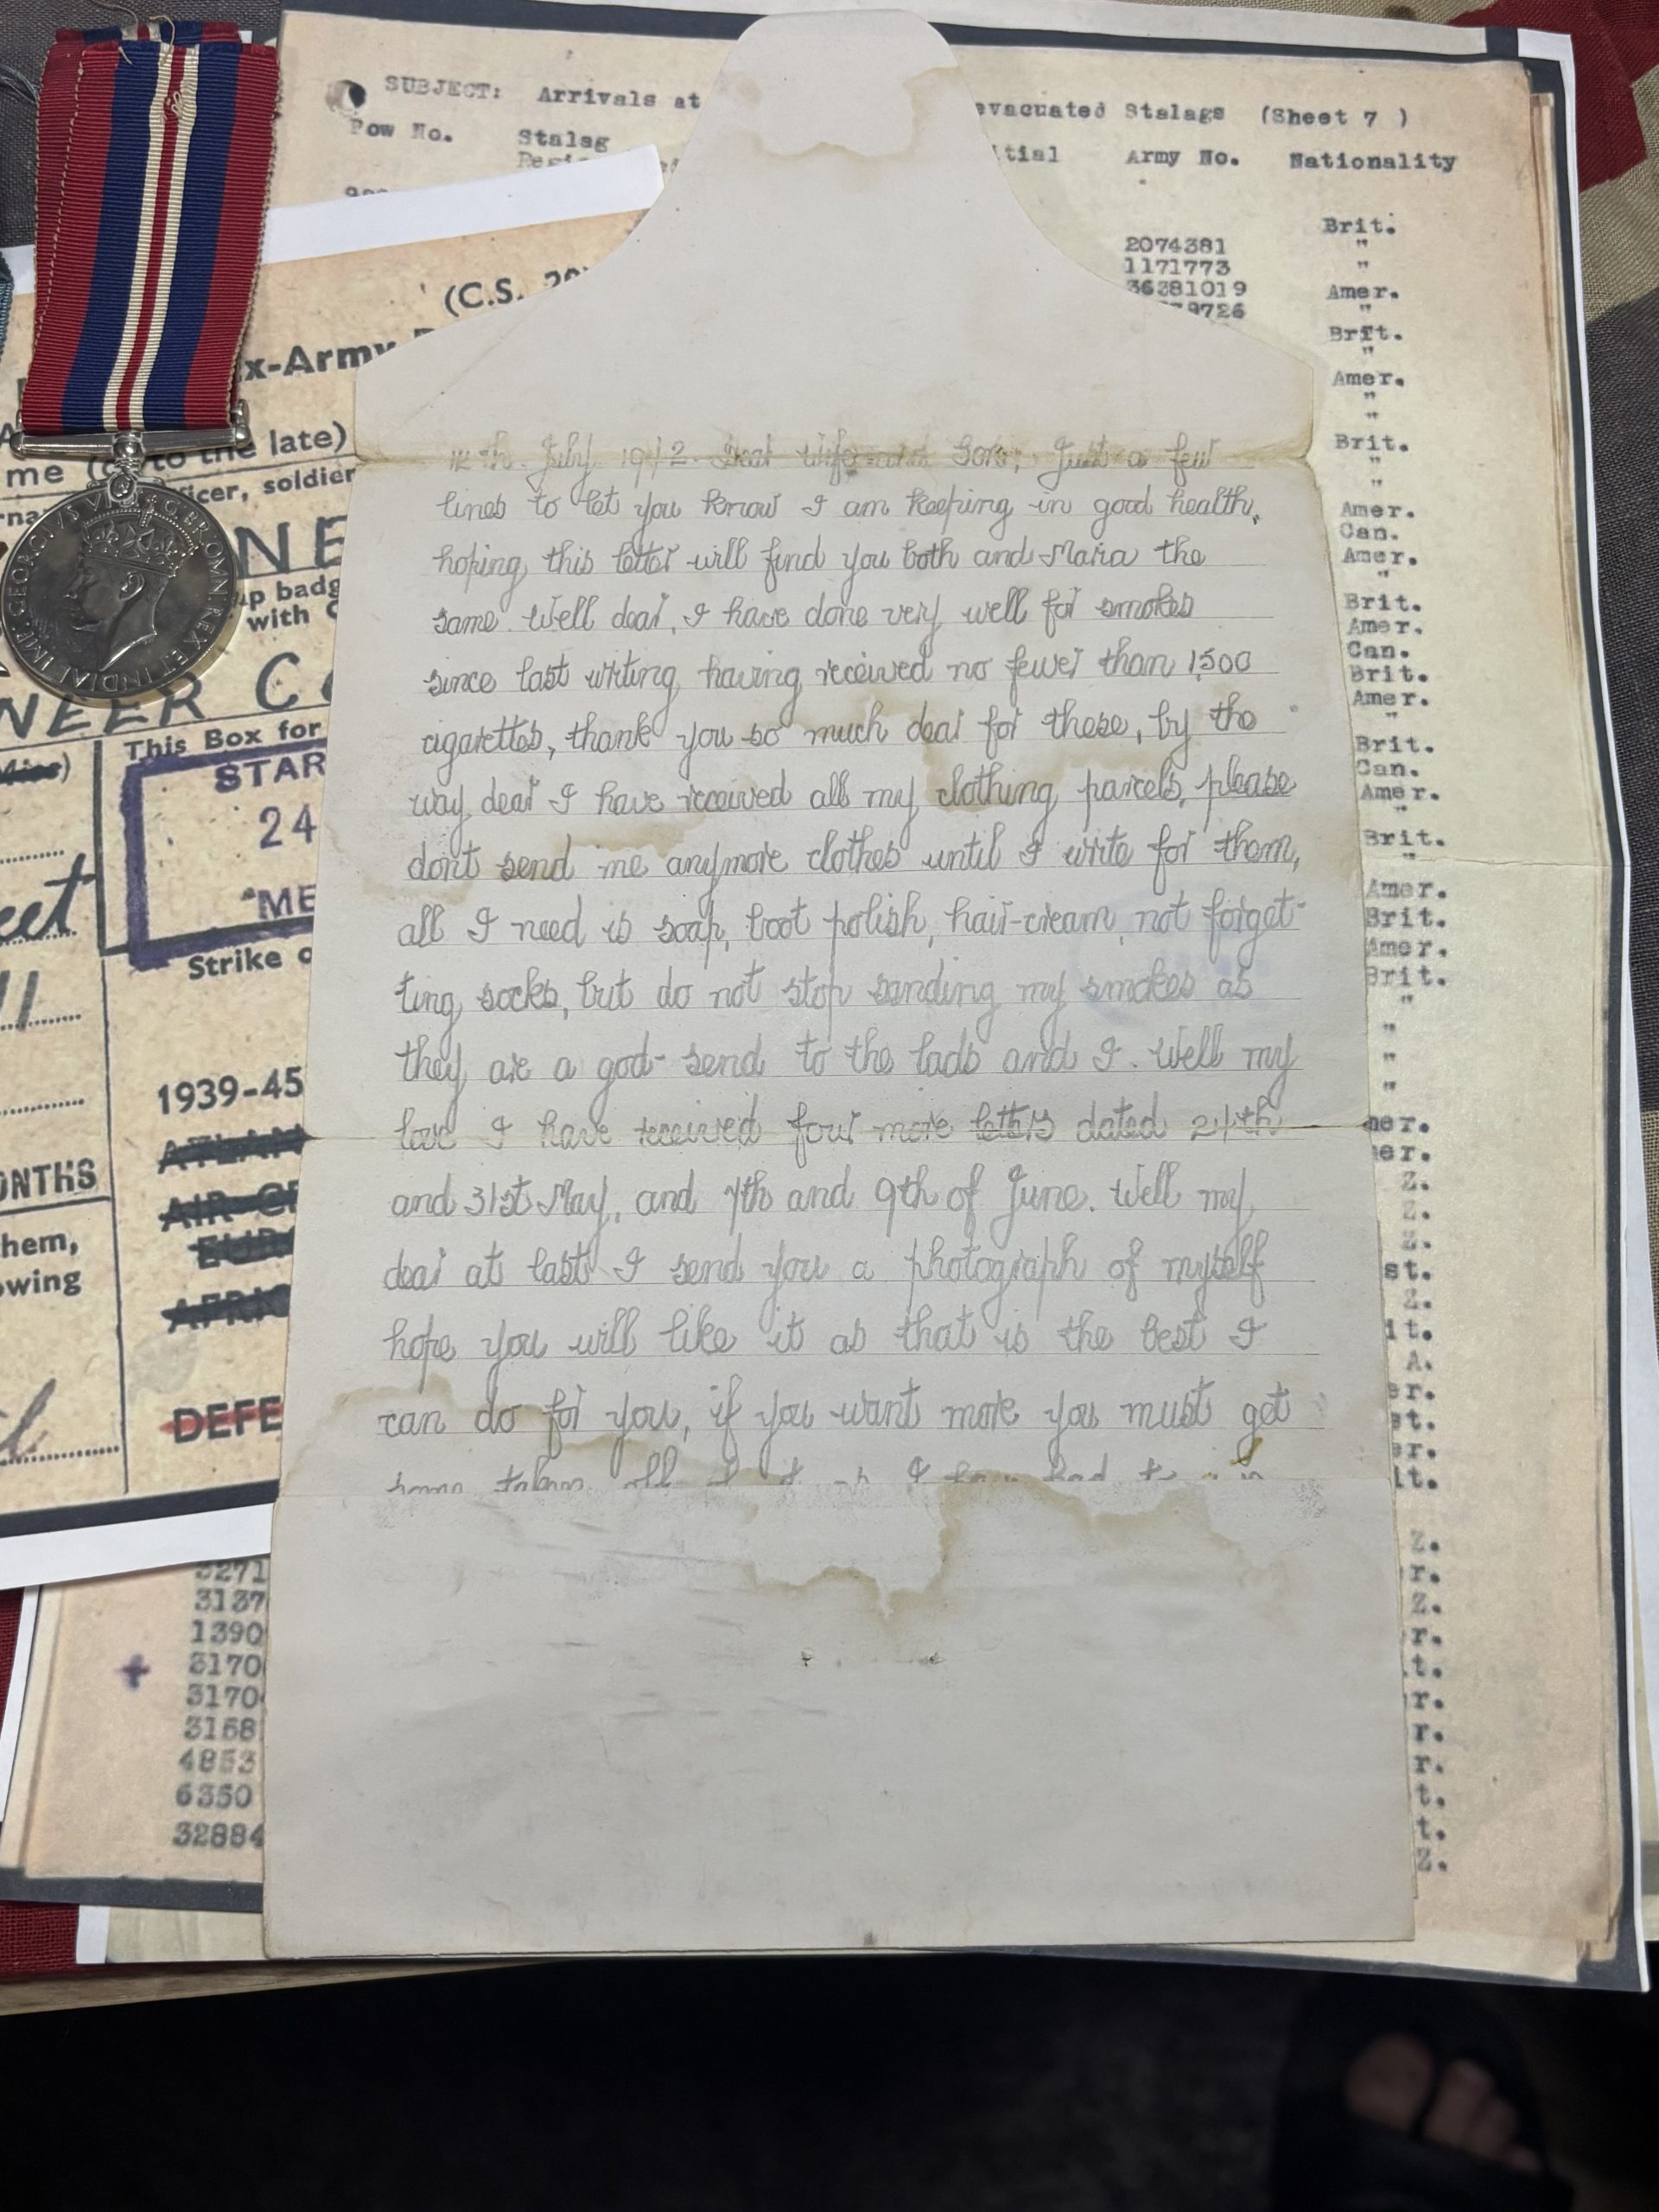 SUBJECT: Arrivals at
evacuated Stalags (Sheet 7 )
Pow No. Stalag
Army No. Nationality
(C.S.
Brit.
2074381 "
1171773 "
36381019 Amer.
9726 "
Brit.
"
Amer.
"
"
Brit.
"
"
Amer.
Can.
Amer.
"
Brit.
Amer.
Can.
Brit.
Amer.
"
Brit.
Can.
Amer.
Brit.
"
Amer.
Brit.
Amer.
Brit.
"
"
"
"
mer.
er.
Z.
Z.
Z.
st.
Z.
it.
A.
er.
st.
er.
it.
Z.
r.
Z.
r.
t.
r.
r.
r.
t.
t.
Z.
x-Army
to the late)
me
icer, soldier
NE
ap badg
with
GEORGIVS VI D:G:BR:OMN:REX ET INDIAE IMP:
NEER C
This Box for
STAR
24
"ME
Strike o
eet
11
1939-45
ATLAN
AIR
EUR
AFRIC
DEFE
ONTHS
hem,
owing
12th. July 1942. Dear Wife and Son, Just a few
lines to let you know I am keeping in good health,
hoping this letter will find you both and Maria the
same. Well dear, I have done very well for smokes
since last writing, having received no fewer than 1,500
cigarettes, thank you so much dear for these, by the
way dear I have received all my clothing parcels, please
dont send me anymore clothes until I write for them,
all I need is soap, boot polish, hair-cream, not forget-
ting socks, but do not stop sending my smokes as
they are a god-send to the lads and I. Well my
love I have received four more letters dated 24th
and 31st May, and 7th and 9th of June. Well my
dear at last I send you a photograph of myself
hope you will like it as that is the best I
can do for you, if you want more you must get
some taken off it as I have had to
3271
3137
1390
+ 3170
3170
3168
4853
6350
32884